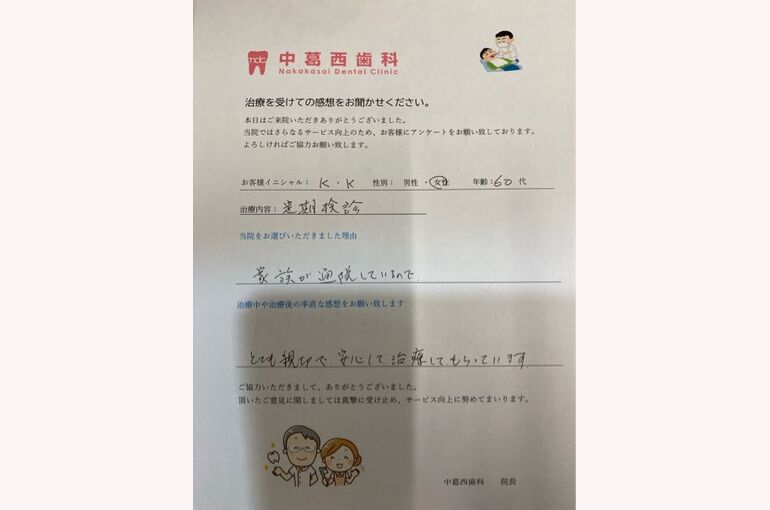 ndc 中葛西歯科
Nakakasai Dental Clinic
治療を受けての感想をお聞かせください。
本日はご来院いただきありがとうございました。
当院ではさらなるサービス向上のため、お客様にアンケートをお願い致しております。
よろしければご協力お願い致します。
お客様イニシャル： K・K 性別： 男性 ・ 女性 年齢：60 代
治療内容： 定期検診
当院をお選びいただきました理由
家族が通院しているので、
治療中や治療後の率直な感想をお願い致します
とても親切で、安心して治療してもらっています
ご協力いただきまして、ありがとうございました。
頂いたご意見に関しましては真摯に受け止め、サービス向上に努めてまいります。
中葛西歯科 院長